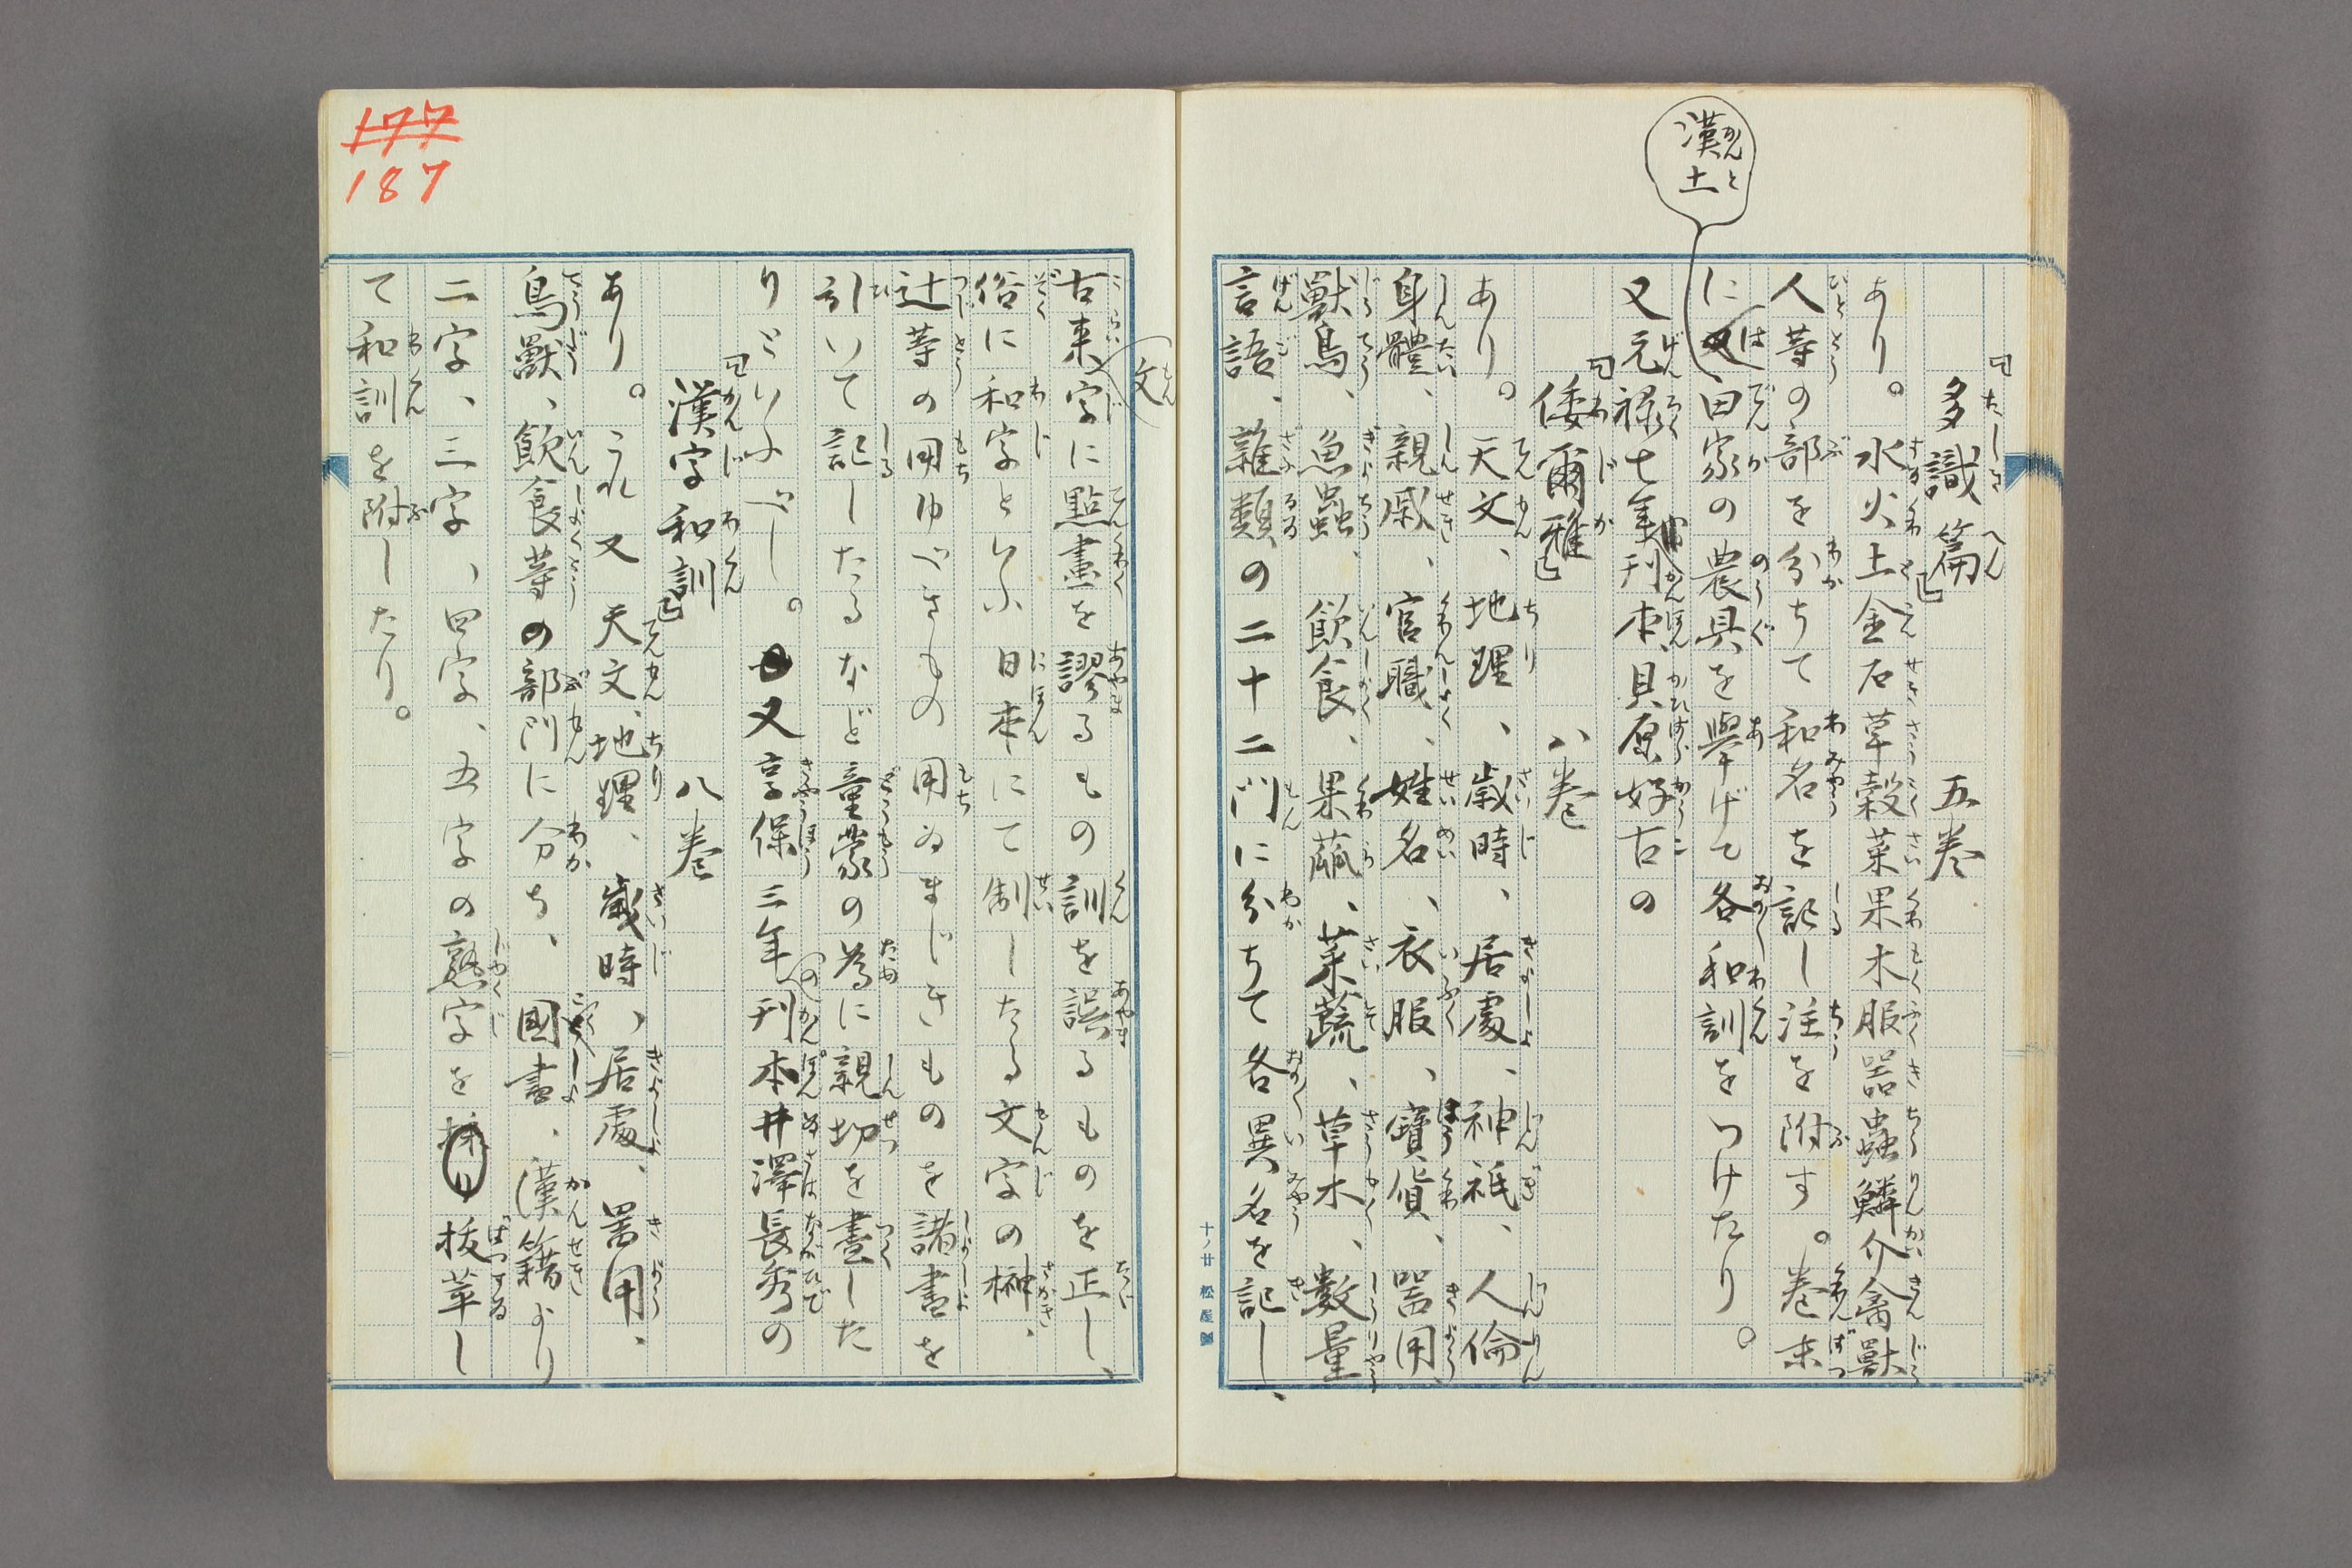 漢土
かんと
『多識篇』 五巻
たしきへん
あり。水火土金石草穀菜果木服器蟲鱗介禽獸
人等の部を分ちて和名を記し注を附す。巻末
に は田家の農具を擧げて各和訓をつけたり。
又元禄七年刊本、貝原好古の
『倭爾雅』 八巻
わじが
あり。天文、地理、歳時、居處、神祇、人倫
身體、親戚、官職、姓名、衣服、寶貨、器用
獸鳥、魚蟲、飲食、果蓏、菜蔬、草木、數量
言語、雜類の二十二門に分ちて各異名を記し、
十ノ廿 松屋製
177
187
文
古来字に點畫を謬るもの訓を誤るものを正し、
俗に和字といふ日本にて制したる文字の榊、
辻等の用ゆべきもの用ゐまじきものを諸書を
引いて記したるなど童蒙の為に親切を盡した
りといふべし。又享保三年の刊本井澤長秀の
『漢字和訓』 八巻
かんじわくん
あり。これ又天文、地理、歳時、居處、器用、
鳥獸、飲食等の部門に分ち、國書、漢籍より
二字、三字、四字、五字の熟字を抜萃し
て和訓を附したり。